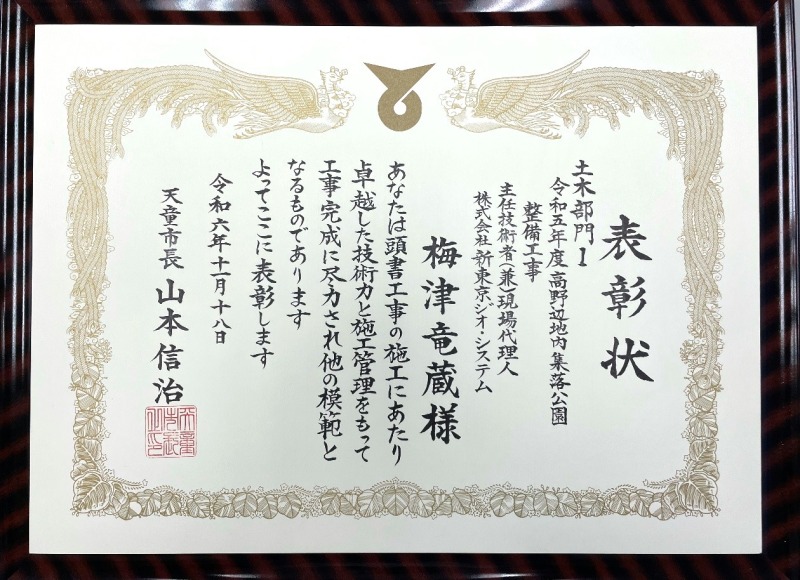 表彰状
土木部門Ⅰ
令和五年度 高野辺地内集落公園
整備工事
主任技術者(兼)現場代理人
株式会社 新東京ジオ・システム
梅津竜蔵様
あなたは頭書工事の施工にあたり
卓越した技術力と施工管理をもって
工事完成に尽力され他の模範と
なるものであります
よってここに表彰します
令和六年十一月十八日
天童市長 山本信治